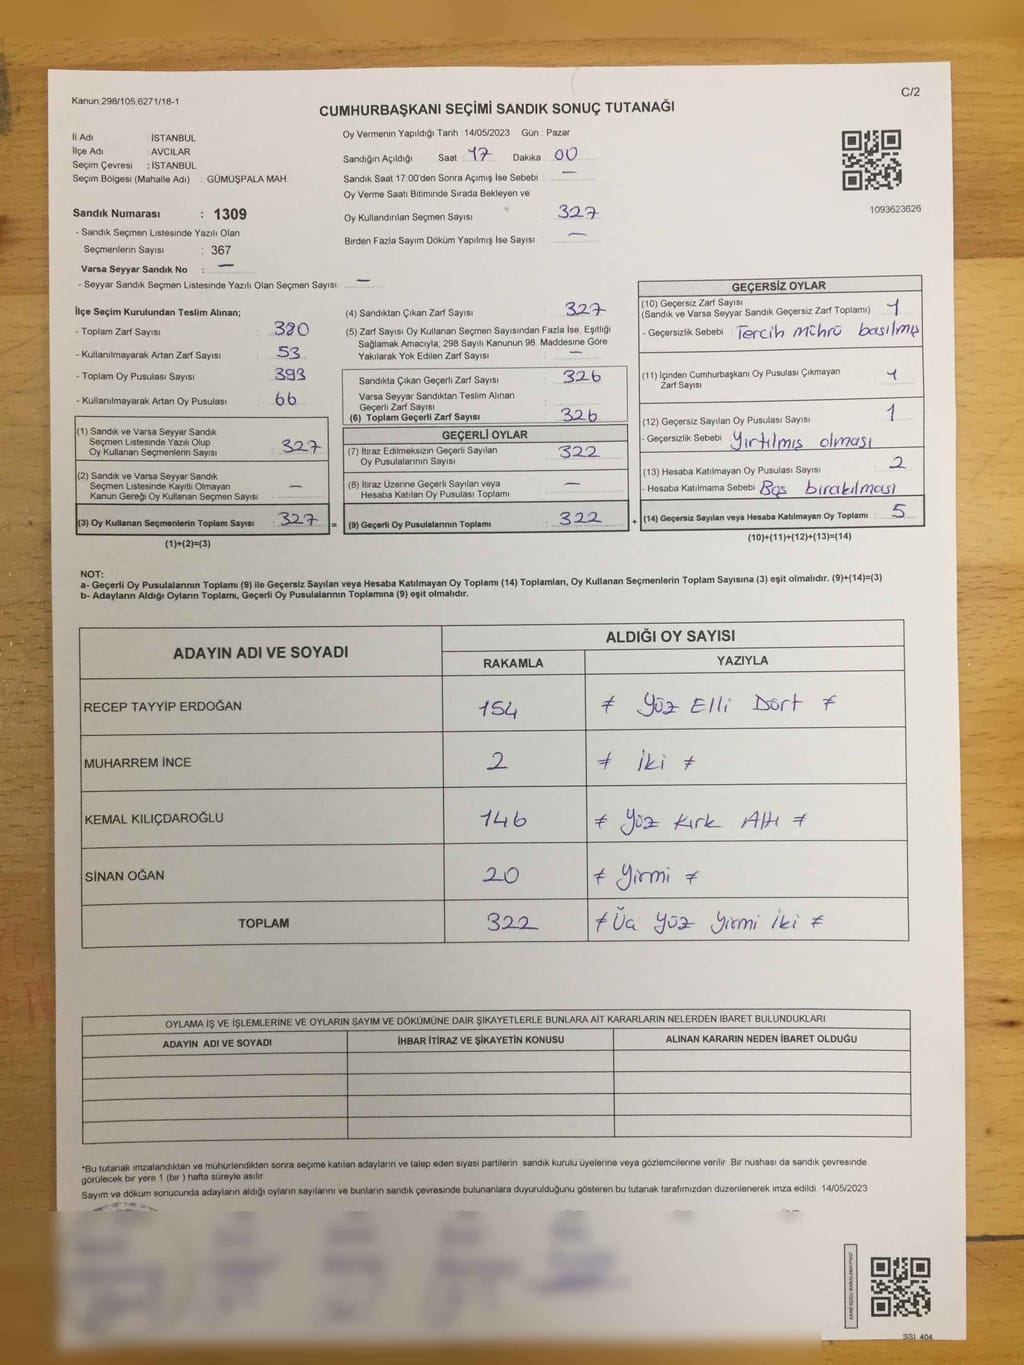 Kanun:298/105;6271/18-1
C/2
CUMHURBAŞKANI SEÇİMİ SANDIK SONUÇ TUTANAĞI
İl Adı : İSTANBUL
İlçe Adı : AVCILAR
Seçim Çevresi : İSTANBUL
Seçim Bölgesi (Mahalle Adı) : GÜMÜŞPALA MAH.
Sandık Numarası : 1309
- Sandık Seçmen Listesinde Yazılı Olan
Seçmenlerin Sayısı : 367
Varsa Seyyar Sandık No : —
- Seyyar Sandık Seçmen Listesinde Yazılı Olan Seçmen Sayısı: —
Oy Vermenin Yapıldığı Tarih : 14/05/2023 Gün : Pazar
Sandığın Açıldığı Saat : 17 Dakika : 00
Sandık Saat 17:00'den Sonra Açımış İse Sebebi : —
Oy Verme Saati Bitiminde Sırada Bekleyen ve
Oy Kullandırılan Seçmen Sayısı : 327
Birden Fazla Sayım Döküm Yapılmış İse Sayısı : —
1093623626
İlçe Seçim Kurulundan Teslim Alınan;
- Toplam Zarf Sayısı : 380
- Kullanılmayarak Artan Zarf Sayısı : 53
- Toplam Oy Pusulası Sayısı : 393
- Kullanılmayarak Artan Oy Pusulası : 66
(1) Sandık ve Varsa Seyyar Sandık
Seçmen Listesinde Yazılı Olup
Oy Kullanan Seçmenlerin Sayısı : 327
(2) Sandık ve Varsa Seyyar Sandık
Seçmen Listesinde Kayıtlı Olmayan
Kanun Gereği Oy Kullanan Seçmen Sayısı : —
(3) Oy Kullanan Seçmenlerin Toplam Sayısı : 327
(1)+(2)=(3)
=
(4) Sandıktan Çıkan Zarf Sayısı : 327
(5) Zarf Sayısı Oy Kullanan Seçmen Sayısından Fazla İse, Eşitliği
Sağlamak Amacıyla; 298 Sayılı Kanunun 98. Maddesine Göre
Yakılarak Yok Edilen Zarf Sayısı : —
Sandıkta Çıkan Geçerli Zarf Sayısı : 326
Varsa Seyyar Sandıktan Teslim Alınan
Geçerli Zarf Sayısı :
(6) Toplam Geçerli Zarf Sayısı : 326
GEÇERLİ OYLAR
(7) İtiraz Edilmeksizin Geçerli Sayılan
Oy Pusulalarının Sayısı : 322
(8) İtiraz Üzerine Geçerli Sayılan veya
Hesaba Katılan Oy Pusulası Toplamı : —
(9) Geçerli Oy Pusulalarının Toplamı : 322
+
GEÇERSİZ OYLAR
(10) Geçersiz Zarf Sayısı
(Sandık ve Varsa Seyyar Sandık Geçersiz Zarf Toplamı) : 1
- Geçersizlik Sebebi : Tercih mührü basılmış
(11) İçinden Cumhurbaşkanı Oy Pusulası Çıkmayan
Zarf Sayısı : 1
(12) Geçersiz Sayılan Oy Pusulası Sayısı : 1
- Geçersizlik Sebebi : Yırtılmış olması
(13) Hesaba Katılmayan Oy Pusulası Sayısı : 2
- Hesaba Katılmama Sebebi : Boş bırakılması
(14) Geçersiz Sayılan veya Hesaba Katılmayan Oy Toplamı : 5
(10)+(11)+(12)+(13)=(14)
NOT:
a- Geçerli Oy Pusulalarının Toplamı (9) ile Geçersiz Sayılan veya Hesaba Katılmayan Oy Toplamı (14) Toplamları, Oy Kullanan Seçmenlerin Toplam Sayısına (3) eşit olmalıdır. (9)+(14)=(3)
b- Adayların Aldığı Oyların Toplamı, Geçerli Oy Pusulalarının Toplamına (9) eşit olmalıdır.
ADAYIN ADI VE SOYADI
ALDIĞI OY SAYISI
RAKAMLA YAZIYLA
RECEP TAYYİP ERDOĞAN 154 ≠ Yüz Elli Dört ≠
MUHARREM İNCE 2 ≠ İki ≠
KEMAL KILIÇDAROĞLU 146 ≠ Yüz Kırk Altı ≠
SİNAN OĞAN 20 ≠ Yirmi ≠
TOPLAM 322 ≠ Üç yüz Yirmi iki ≠
OYLAMA İŞ VE İŞLEMLERİNE VE OYLARIN SAYIM VE DÖKÜMÜNE DAİR ŞİKAYETLERLE BUNLARA AİT KARARLARIN NELERDEN İBARET BULUNDUKLARI
ADAYIN ADI VE SOYADI İHBAR İTİRAZ VE ŞİKAYETİN KONUSU ALINAN KARARIN NEDEN İBARET OLDUĞU
*Bu tutanak imzalandıktan ve mühürlendikten sonra seçime katılan adayların ve talep eden siyasi partilerin sandık kurulu üyelerine veya gözlemcilerine verilir. Bir nüshası da sandık çevresinde
görülecek bir yere 1 (bir ) hafta süreyle asılır.
Sayım ve döküm sonucunda adayların aldığı oyların sayılarını ve bunların sandık çevresinde bulunanlara duyurulduğunu gösteren bu tutanak tarafımızdan düzenlenerek imza edildi. 14/05/2023
SSI_404